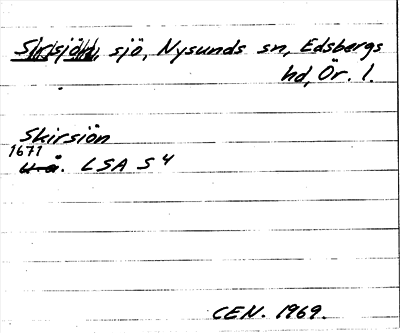 sjö, Nysunds sn, Edsbergs
hd, Ör. l.
Skirsiön
1671
u. å. LSA S 4
CEN. 1969.